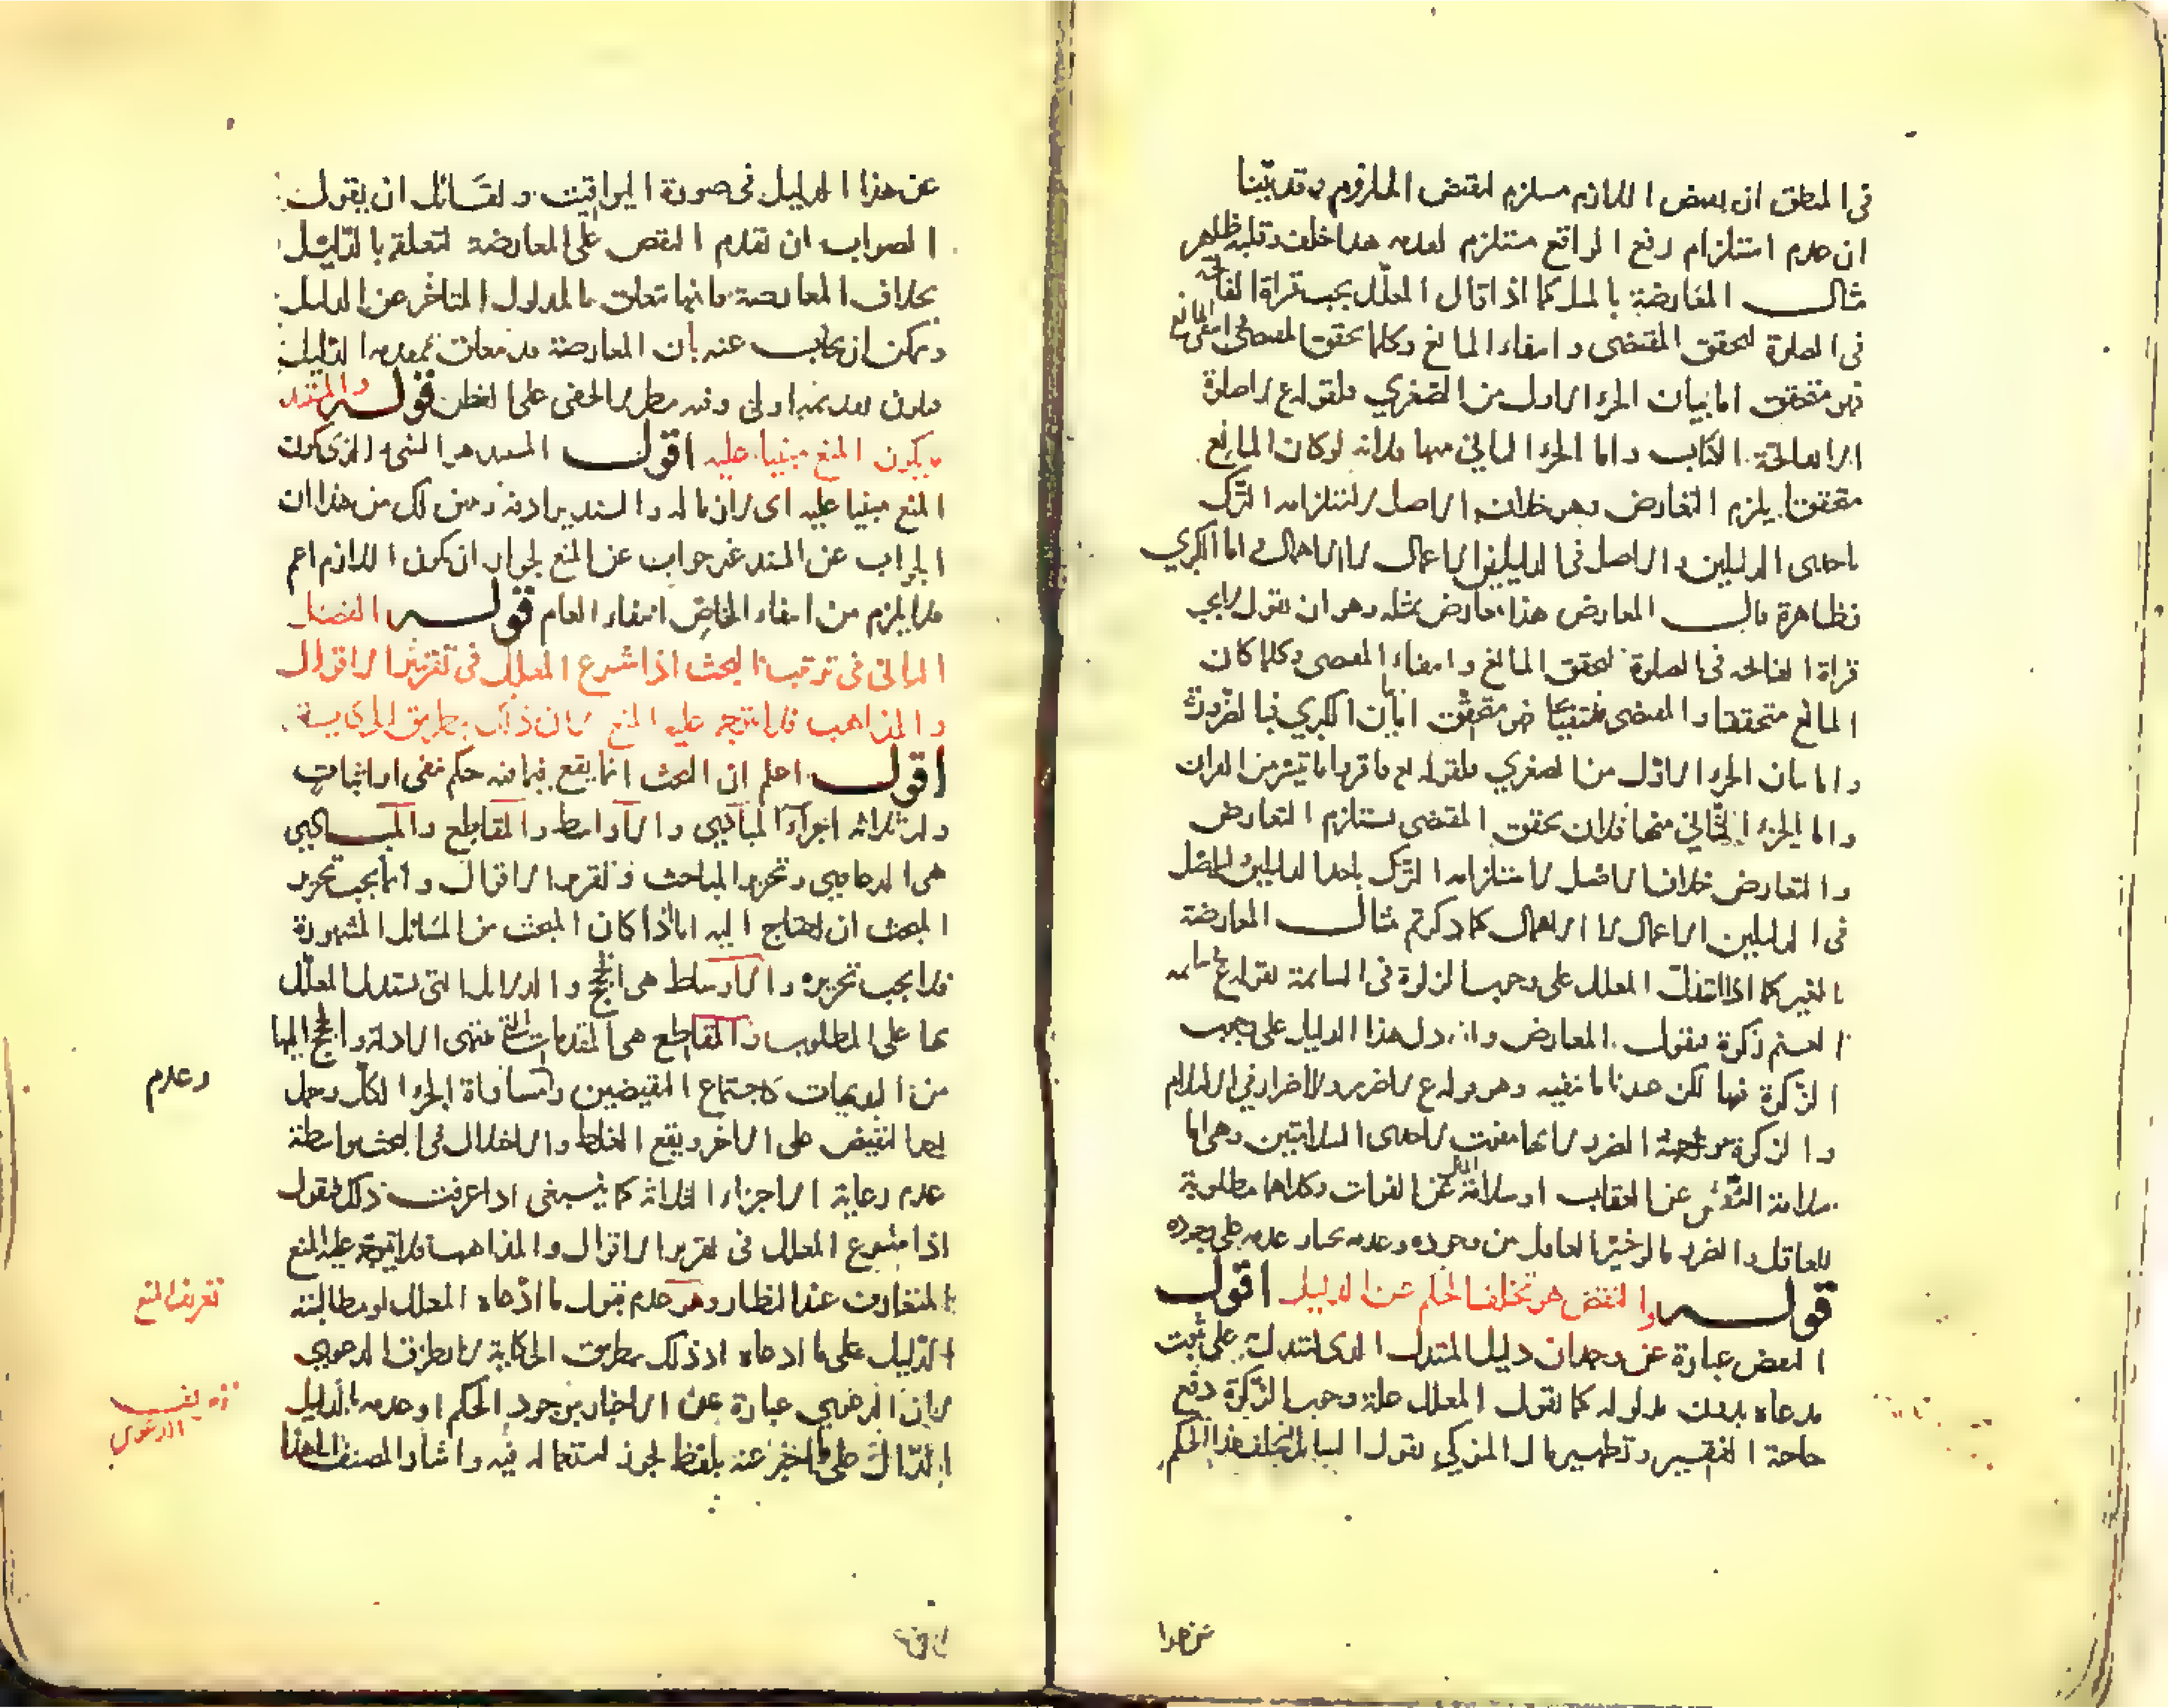 في المنطق ان بعض اللازم مستلزم لنقيض الملزوم وقد بيّنا
ان عدم استلزام رفع الواقع مستلزم لعدمه هذا خلف وقلبه ظاهر
مثال المعارضة بالمثل كما اذا قال المعلّل يجب قراة الفاتحة
في الصلوة لتحقق المقتضى وانتفاء المانع وكلما تحقق المقتضى وانتفى المانع
فهو متحقق اما بيان الجزء الاول من الصغري فلقوله ع لا صلوة
الا بفاتحة الكتاب واما الجزء الثاني منها فلانه لو كان المانع
متحققا يلزم التعارض وهو خلاف الاصل لاستلزامه الترك
باحدى الدليلين والاصل في الدليلين الاعمال لا الاهمال واما الكبري
فظاهرة قال المعارض هذا معارض بمثله وهو ان نقول لا يجب
قراة الفاتحه في الصلوة لتحقق المانع وانتفاء المقتضى وكلما كان
المانع متحققا والمقتضى منتفيا فهو متحقق اما بيان الكبري فبالضرورة
واما بيان الجزء الاول من الصغري فلقوله تع فاقروا ما تيسر من القران
واما الجزء الثاني منها فلان تحقق المقتضى يستلزم التعارض
والتعارض خلاف الاصل لاستلزامه الترك باحد الدليلين والاصل
في الدليلين الاعمال لا الاهمال كما ذكرتم مثال المعارضة
بالغير كما اذا استدل المعلل على وجوب الزكوة في السائمة بقوله ع في سائمة
الغنم زكوة فيقول المعارض وان دل هذا الدليل على وجوب
الزكوة فيها لكن عندنا ما ينفيه وهو قوله ع لا ضرر ولا اضرار في الاسلام
والزكوة موجبة الضرر لانها مفوت لاحدى السلامتين وهي اما
سلامة النفس عن العقاب او سلامة المال عن الفوات وكلاهما مطلوبة
للعاقل والضرر ما لو خير العاقل من وجوده وعدمه يختار عدمه على وجوده
قوله والنقض هو تخلف الحكم عن الدليل اقول
النقض عبارة عن وجدان دليل المستدل الذي استدل به على ثبوت
مدعاه بدون مدلوله كما يقول المعلل علة وجوب الزكوة دفع
حاجة الفقير وتطهير مال المزكي يقول السائل تخلف هذا الحكم
عن هذا الدليل في صورة اليواقيت ولقائل ان يقول
الصواب ان تقدم النقض على المعارضة لتعلقه بالدليل
بخلاف المعارضة فانها تتعلق بالمدلول المتاخر عن الدليل
ويمكن ان يجاب عنه بان المعارضة قد تتعلق بمقدمة الدليل
فلان تقديمه اولى وفيه نظر لا يخفى على الفطن قوله والمستند
ما يكون المنع مبنيا عليه اقول المستند هو الشيء الذي يكون
المنع مبنيا عليه اى لازما له والسند يرادفه وتبين لك من هذا ان
الجواب عن المستند غير جواب عن المنع لجواز ان يكون اللازم اعم
فلا يلزم من انتفاء الخاص انتفاء العام قوله الفصل
الثاني في ترتيب البحث اذا شرع المعلل في تقرير الاقوال
والمذاهب فلا يتوجه عليه المنع لان ذلك بطريق الحكاية
اقول اعلم ان البحث انما يقع فيما فيه حكم نفى او اثبات
وله ثلاثة اجزاء المبادي والاواسط والمقاطع والمبادي
هي الدعاوي وتحرير المباحث وتقرير الاقوال وانما يجب تحرير
المبحث ان احتاج اليه اما اذا كان المبحث من المسائل المشهورة
فلا يجب تحريره والاوساط هي الحجج والدلائل التي يستدل المعلل
بها على المطلوب والمقاطع هي المقدمات التي تنتهى الادلة والحجج اليها
من البديهيات كاجتماع النقيضين ومساواة الجزء الكل وحمل
احد النقيض على الاخر ويقع الغلط والاختلال في البحث بواسطة
عدم رعاية الاجزاء الثلاثة كما ينبغى اذا عرفت ذلك فنقول
اذا شرع المعلل في تقرير الاقوال والمذاهب فلا يتوجه عليه المنع
المتعارف عند النظار وهو عدم قبول ما ادعاه المعلل او مطالبته
الدليل على ما ادعاه اذ ذلك بطريق الحكاية لا بطريق الدعوي
لان الدعوي عبارة عن الاخبار بوجود الحكم او عدمه بالدليل
الدال على ما اخبر عنه بلفظ يجوز استعماله فيه واشار المصنف الى هذا
وعدم
تعريف المنع
تعريف
الدعوى